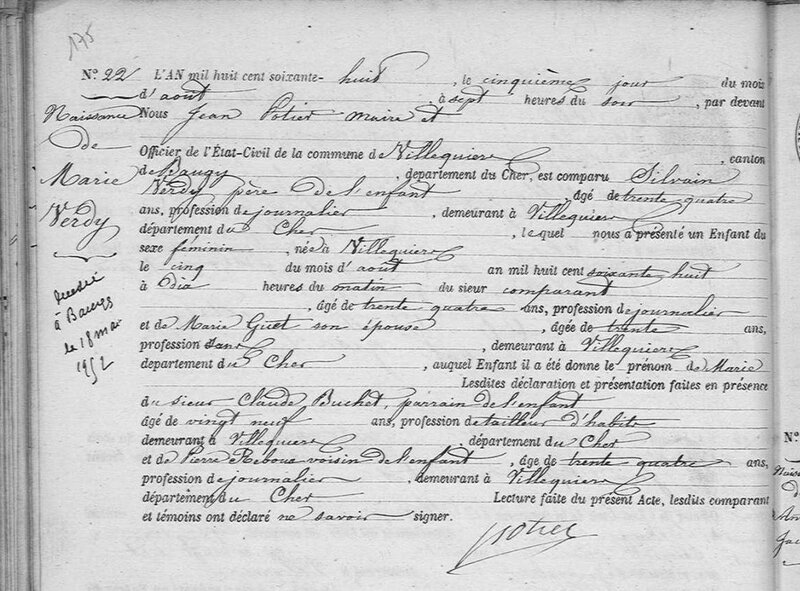 175
N° 22 L'AN mil huit cent soixante- huit, le cinquième jour du mois
d'août à sept heures du soir, par devant
Naissance Nous Jean Potier maire et
de Officier de l'État-Civil de la commune de Villequiers, canton
de Baugy, département du Cher, est comparu Silvain
Marie Verdy père de l'enfant âgé de trente quatre
Verdy ans, profession de journalier, demeurant à Villequiers
département du Cher, lequel nous a présenté un Enfant du
sexe féminin, née à Villequiers
le cinq du mois d'août an mil huit cent soixante huit
à dix heures du matin du sieur comparant
décédée à le 18 mai 1952
, âgé de trente quatre ans, profession de journalier
et de Marie Guet son épouse, âgée de trente ans,
profession sans, demeurant à Villequiers
departement du Cher, auquel Enfant il a été donne le prénom de Marie
Lesdites déclaration et présentation faites en présence
du sieur Claude Buchet, parrain de l'enfant
âgé de vingt neuf ans, profession de tailleur d'habits
demeurant à Villequiers, département du Cher
et de Pierre Reboux voisin de l'enfant, âgé de trente quatre ans,
profession de journalier, demeurant à Villequiers
département du Cher Lecture faite du présent Acte, lesdits comparant
et témoins ont déclaré ne savoir signer.
Potier
N°